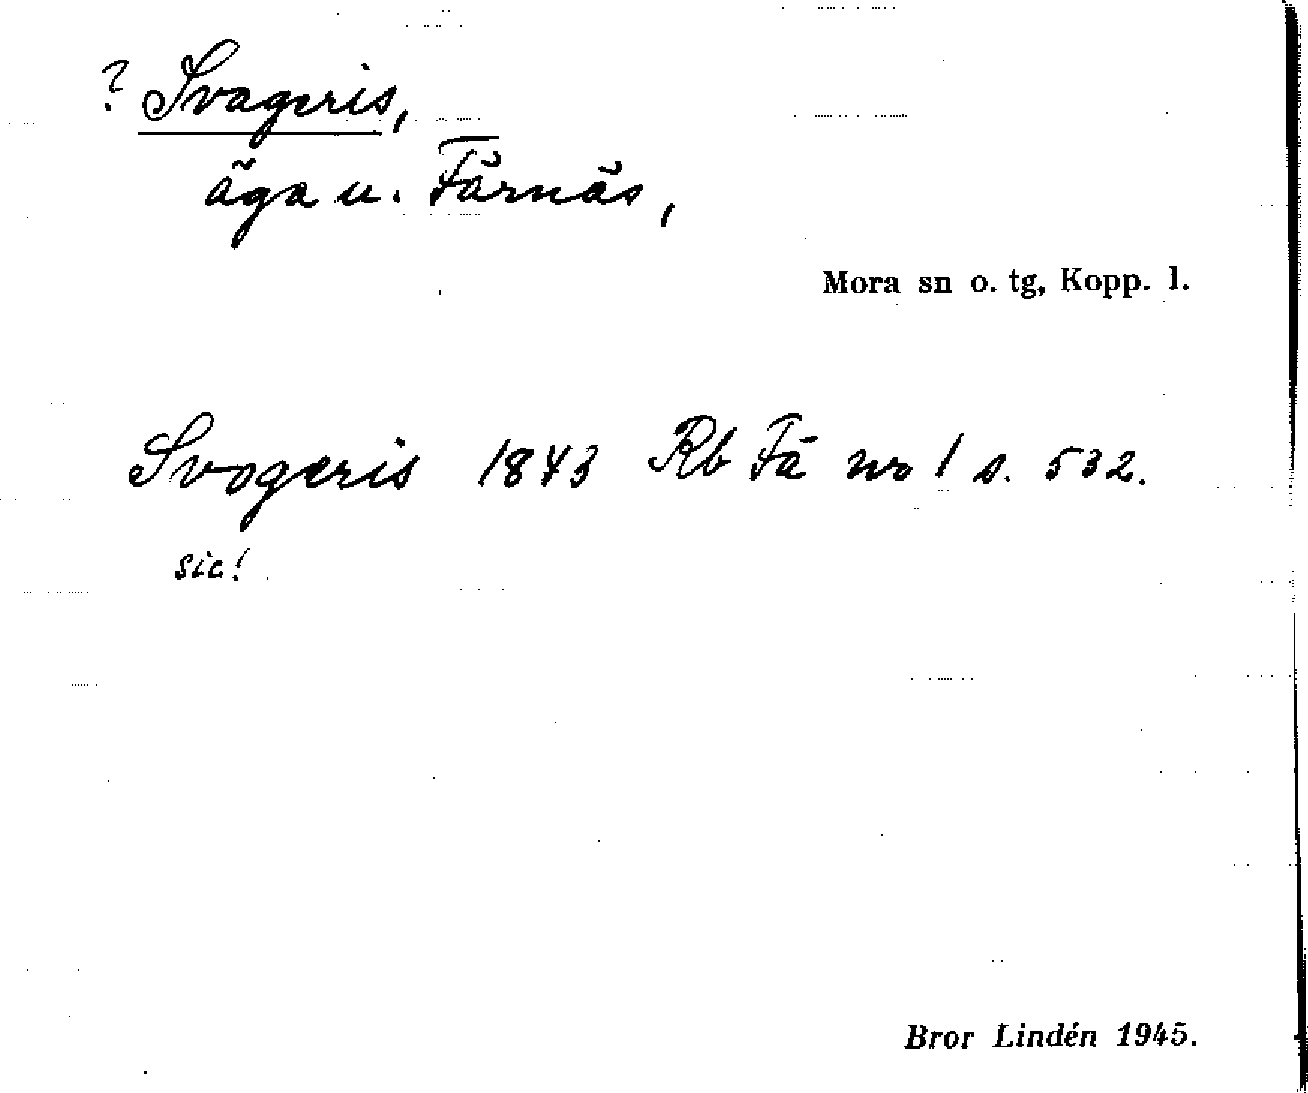 ? Svageris,
äga u. Färnäs,
Mora sn o. tg, Kopp. l.
Svogeris 1843 Rb Fä nr 1 s. 532.
sic!
Bror Lindén 1945.